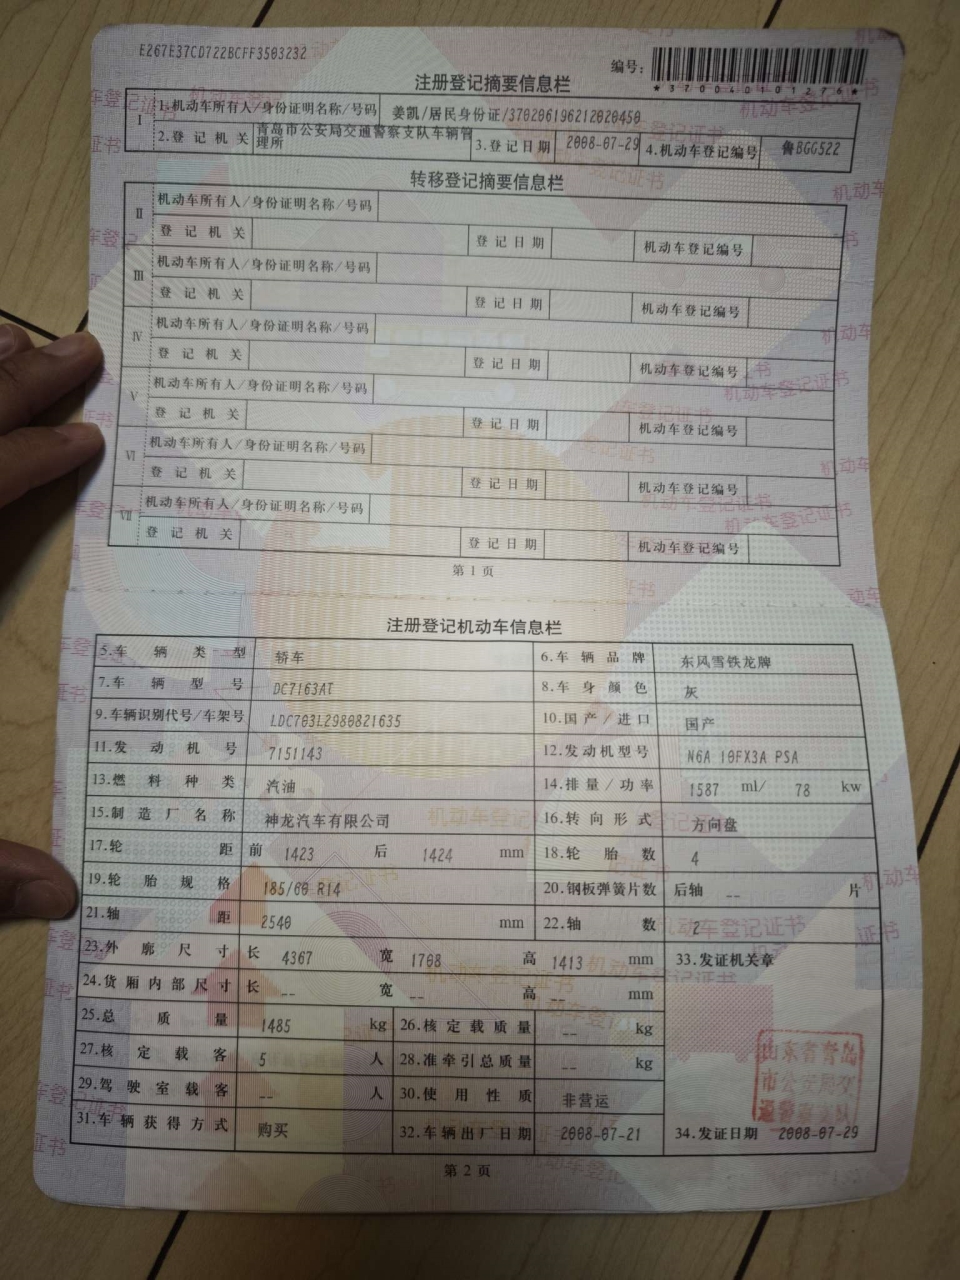 E267E37CD722BCFF3503232
编号：
*370040101276*
注册登记摘要信息栏
Ⅰ 1.机动车所有人/身份证明名称/号码 姜凯/居民身份证/370206196212020450
2.登记机关 青岛市公安局交通警察支队车辆管理所 3.登记日期 2008-07-29 4.机动车登记编号 鲁BGG522
转移登记摘要信息栏
Ⅱ 机动车所有人/身份证明名称/号码
登记机关 登记日期 机动车登记编号
Ⅲ 机动车所有人/身份证明名称/号码
登记机关 登记日期 机动车登记编号
Ⅳ 机动车所有人/身份证明名称/号码
登记机关 登记日期 机动车登记编号
Ⅴ 机动车所有人/身份证明名称/号码
登记机关 登记日期 机动车登记编号
Ⅵ 机动车所有人/身份证明名称/号码
登记机关 登记日期 机动车登记编号
Ⅶ 机动车所有人/身份证明名称/号码
登记机关 登记日期 机动车登记编号
第1页
注册登记机动车信息栏
5.车辆类型 轿车 6.车辆品牌 东风雪铁龙牌
7.车辆型号 DC7163AT 8.车身颜色 灰
9.车辆识别代号/车架号 LDC703L2980821635 10.国产/进口 国产
11.发动机号 7151143 12.发动机型号 N6A 10FX3A PSA
13.燃料种类 汽油 14.排量/功率 1587 ml/ 78 kw
15.制造厂名称 神龙汽车有限公司 16.转向形式 方向盘
17.轮距 前 1423 后 1424 mm 18.轮胎数 4
19.轮胎规格 185/60 R14 20.钢板弹簧片数 后轴 -- 片
21.轴距 2540 mm 22.轴数 2
23.外廓尺寸 长 4367 宽 1708 高 1413 mm 33.发证机关章
24.货厢内部尺寸 长 -- 宽 -- 高 -- mm
25.总质量 1485 kg 26.核定载质量 -- kg
27.核定载客 5 人 28.准牵引总质量 -- kg
29.驾驶室载客 -- 人 30.使用性质 非营运
山东省青岛
市公安局交
通警察支队
31.车辆获得方式 购买 32.车辆出厂日期 2008-07-21 34.发证日期 2008-07-29
第2页